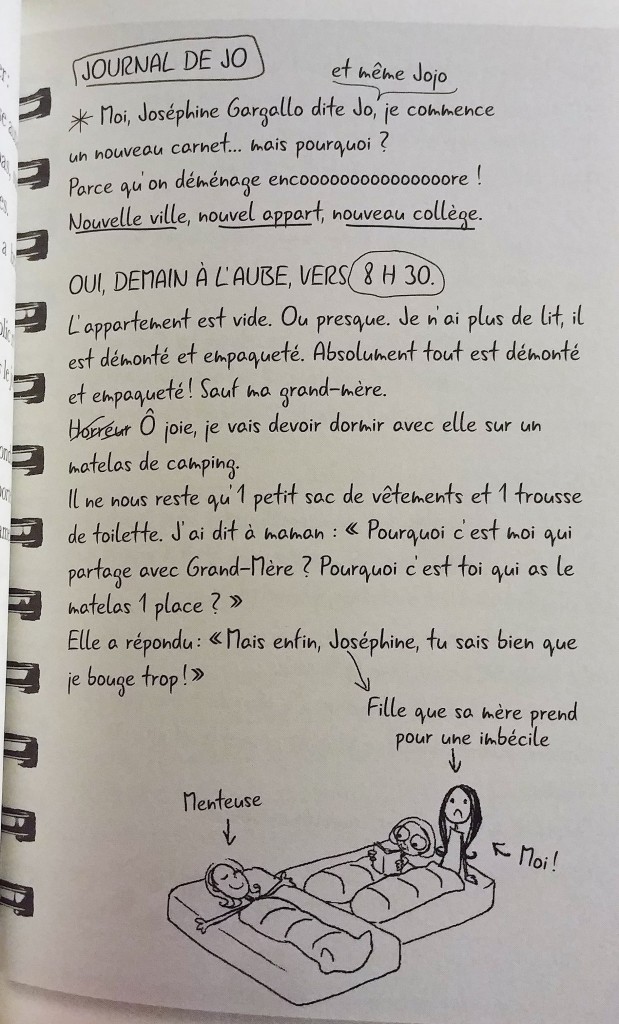 JOURNAL DE JO
et même Jojo
* Moi, Joséphine Gargallo dite Jo, je commence
un nouveau carnet... mais pourquoi ?
Parce qu'on déménage encooooooooooooooore !
Nouvelle ville, nouvel appart, nouveau collège.
OUI, DEMAIN À L'AUBE, VERS 8 H 30.
L'appartement est vide. Ou presque. Je n'ai plus de lit, il
est démonté et empaqueté. Absolument tout est démonté
et empaqueté ! Sauf ma grand-mère.
Horreur Ô joie, je vais devoir dormir avec elle sur un
matelas de camping.
Il ne nous reste qu'1 petit sac de vêtements et 1 trousse
de toilette. J'ai dit à maman : « Pourquoi c'est moi qui
partage avec Grand-Mère ? Pourquoi c'est toi qui as le
matelas 1 place ? »
Elle a répondu : « Mais enfin, Joséphine, tu sais bien que
je bouge trop ! »
Fille que sa mère prend
pour une imbécile
Menteuse
Moi !